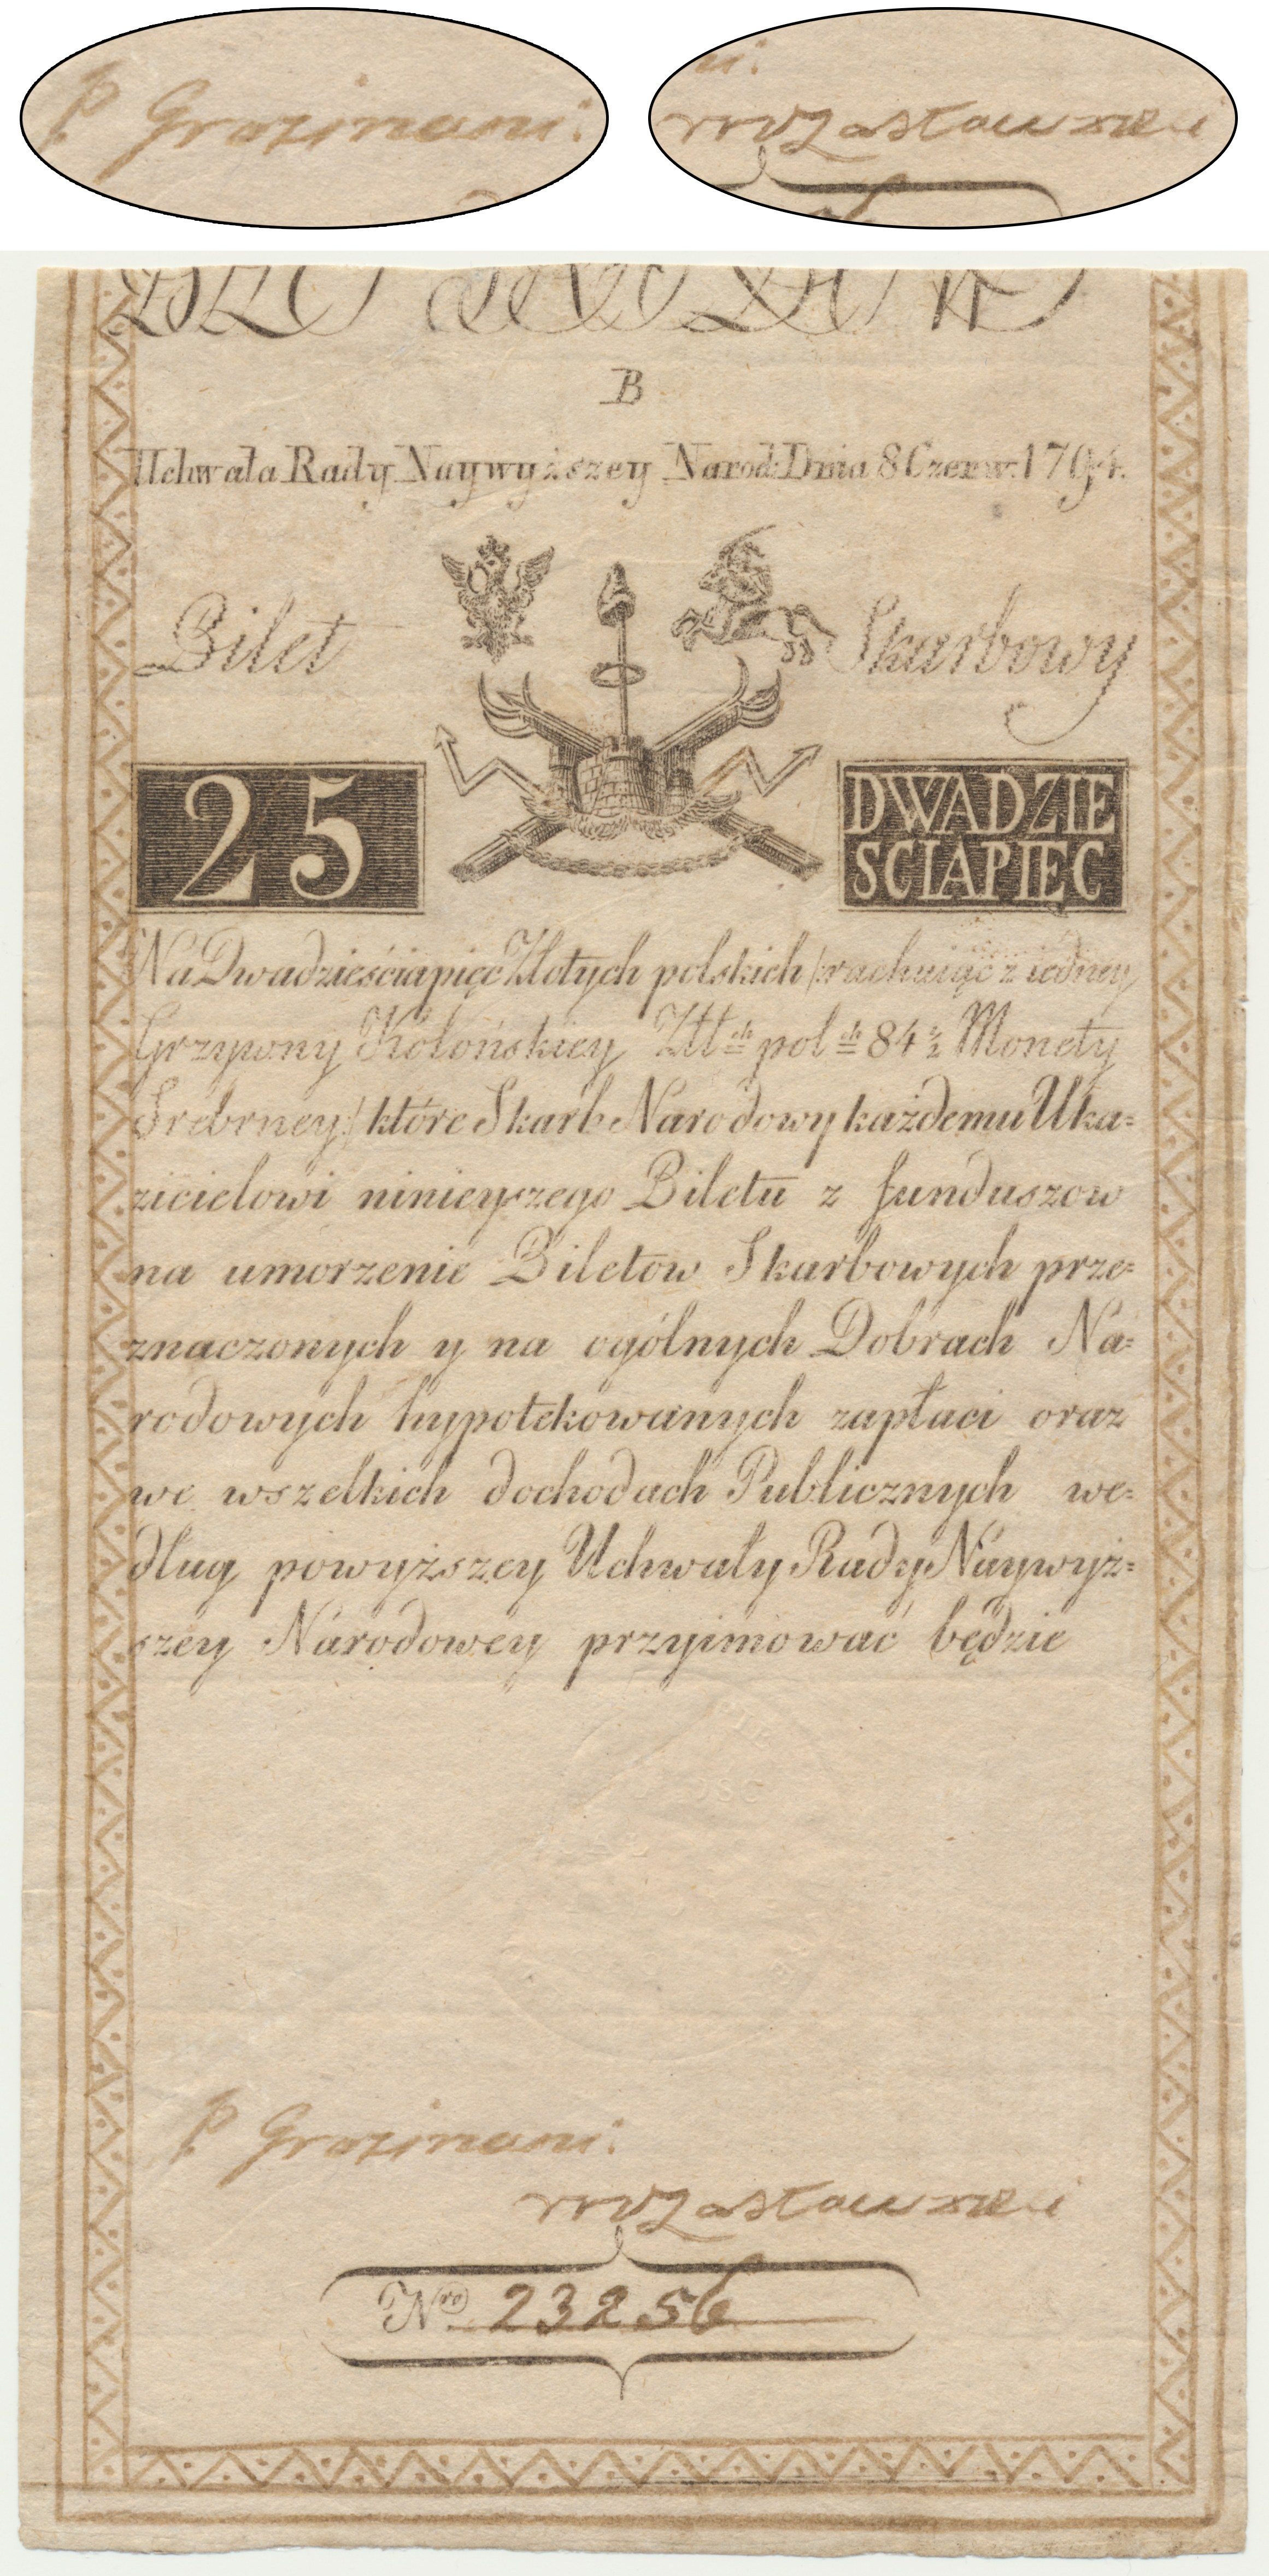 P Grozmani.
mWZastawski
B
Uchwała Rady Naywyższey Narod: Dnia 8 Czerw: 1794.
Bilet Skarbowy
25
DWADZIE
SCIAPIĘC
Na Dwadzieściapięć Złotych polskich /:rachuiąc z iedney
Grzywny Kolońskiey Złł ch pol ch 84 ½ Monety
Srebrney:/ które Skarb Narodowy każdemu Uka=
zicielowi ninieyszego Biletu z funduszow
na umorzenie Biletow Skarbowych prze=
znaczonych y na ogólnych Dobrach Na=
rodowych hypotekowanych zapłaci oraz
we wszelkich dochodach Publicznych we=
dług powyższey Uchwały Rady Náywyż=
szey Národowey przyimować będzie
P Grozmani.
mWZastawski
Nro 23256